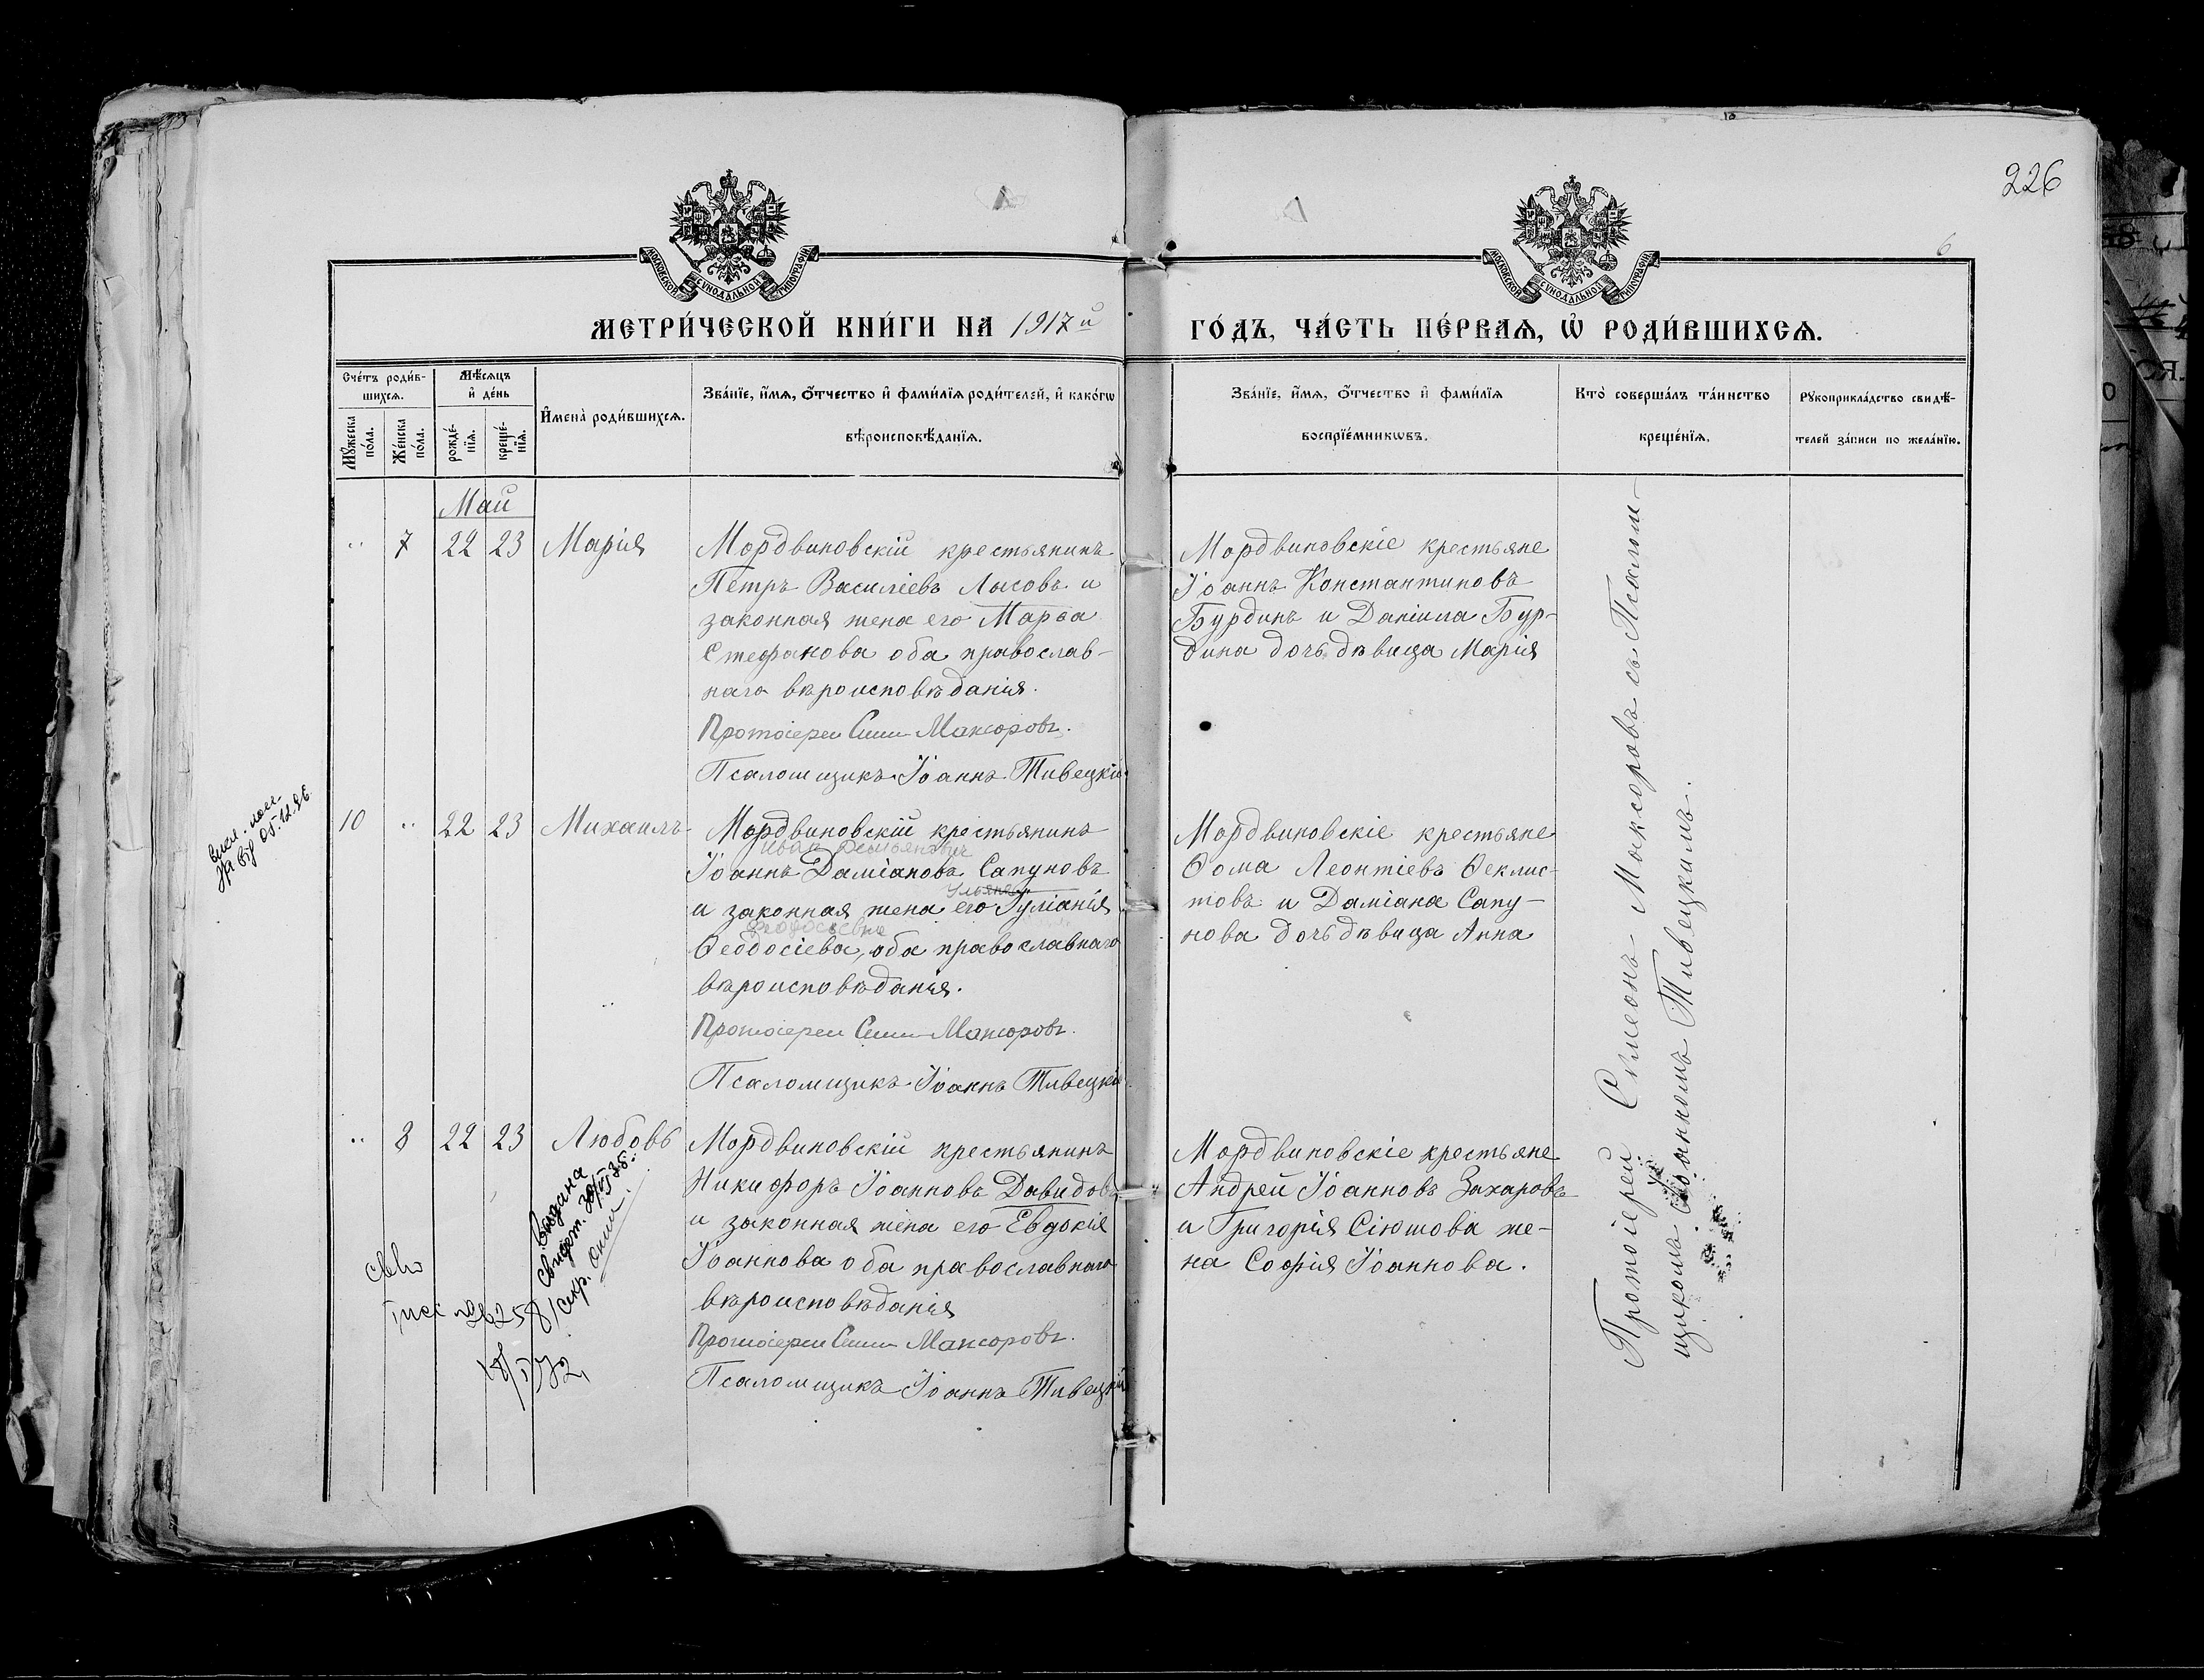 226
6
МОСКОВСКОЙ СѴНОДАЛЬНОЙ ТИПОГРАФІИ
МОСКОВСКОЙ СѴНОДАЛЬНОЙ ТИПОГРАФІИ
МЕТРИ́ЧЕСКОЙ КНИ́ГИ НА 1917й
ГО́ДЪ, ЧА́СТЬ ПЕ́РВАѦ, Ѡ҆ РОДИ́ВШИХСѦ.
Сче́тъ роди́в-
шихсѧ.
Мꙋ́жеска
по́ла.
Же́нска
по́ла.
Мѣ́сѧцъ
и҆ де́нь
рожде́-
нїѧ.
креще́-
нїѧ.
И҆мена̀ роди́вшихсѧ.
Зва́нїе, и҆́мѧ, ѻ҆́тчество и҆ фами́лїѧ роди́телей, и҆ како́гѡ
вѣроисповѣ́данїѧ.
Зва́нїе, и҆́мѧ, ѻ҆́тчество и҆ фами́лїѧ
воспрїе́мникѡвъ.
Кто̀ соверша́лъ та́инство
креще́нїѧ.
Рꙋкоприкла́дство свидѣ́-
телей за́писи по жела́нїю.
Май
" 7 22 23 Марія
Мордвиновскій крестьянинъ
Петръ Василіевъ Лысовъ и
законная жена его Марѳа
Стефанова оба православ-
наго вѣроисповѣданія.
Протоіерей Симеонъ Максоровъ.
Псаломщикъ Іоаннъ Тивецкій
Мордвиновскіе крестьяне
Іоаннъ Константиновъ
Бурдинъ и Даніила Бур-
дина дочь дѣвица Марія
10 " 22 23 Михаилъ
Мордвиновскій крестьянинъ
Иван Демьянович
Іоаннъ Даміановъ Сапуновъ
Ульяна
и законная жена его Іуліанія
Феодосьевна
Ѳеодосіева, оба православнаго
вѣроисповѣданія.
Протоіерей Симеонъ Максоровъ.
Псаломщикъ Іоаннъ Тивецкій
Мордвиновскіе крестьяне
Ѳома Леонтіевъ Ѳеклис-
товъ и Даміана Сапу-
нова дочь дѣвица Анна
05.12.96
" 8 22 23 Любовь
Мордвиновскій крестьянинъ
Никифоръ Іоанновъ Давидовъ
и законная жена его Евдокія
Іоаннова оба православнаго
вѣроисповѣданія
Протоіерей Симеонъ Максоровъ.
Псаломщикъ Іоаннъ Тивецкій
Мордвиновскіе крестьяне
Андрей Іоанновъ Захаровъ
и Григорія Сіютова же-
на Софія Іоаннова.
Выдана
свидет.
секр.
Протоіерей Симеонъ Максоровъ съ Псалом-
щикомъ Іоанномъ Тивецкимъ.